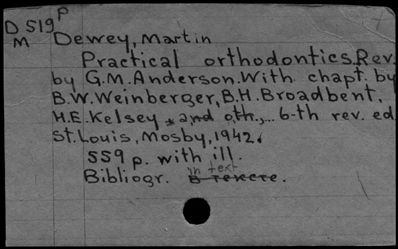 D 519 P
M Dewey, Martin
Practical orthodontics. Rev.
by G.M. Anderson. With chapt. by
B.W. Weinberger, B.H. Broadbent,
H.E. Kelsey and oth., ... 6-th rev. ed.
St. Louis, Mosby, 1942.
559 p. with ill.
in text
Bibliogr. в тексте.